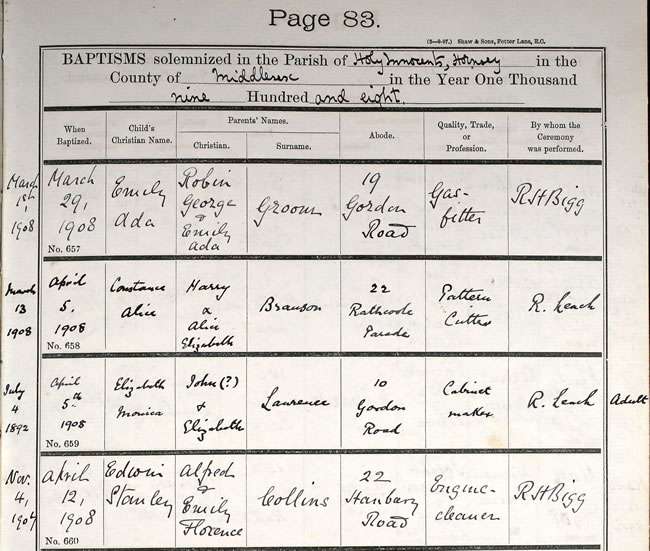 Page 83.
(3—8-97.) Shaw & Sons, Fetter Lane, E.C.
BAPTISMS solemnized in the Parish of Holy Innocents, Hornsey in the
County of Middlesex in the Year One Thousand
nine Hundred and eight.
When Baptized. Child's Christian Name. Parents' Names. Christian. Surname. Abode. Quality, Trade, or Profession. By whom the Ceremony was performed.
March 1st, 1908
March 29, 1908
No. 657
Emily Ada
Robin George & Emily Ada
Groom
19 Gordon Road
Gas-fitter
R H Bigg
March 13 1908
April 5, 1908
No. 658
Constance Alice
Harry & Alice Elizabeth
Branson
22 Rathcoole Parade
Pattern Cutter
R. Leach
July 4 1892
April 5th 1908
No. 659
Elizabeth Monica
John (?) & Elizabeth
Lawrence
10 Gordon Road
Cabinet maker
R. Leach
Adult
Nov. 4, 1907
April 12, 1908
No. 660
Edwin Stanley
Alfred & Emily Florence
Collins
22 Hanbury Road
Engine-cleaner
R H Bigg